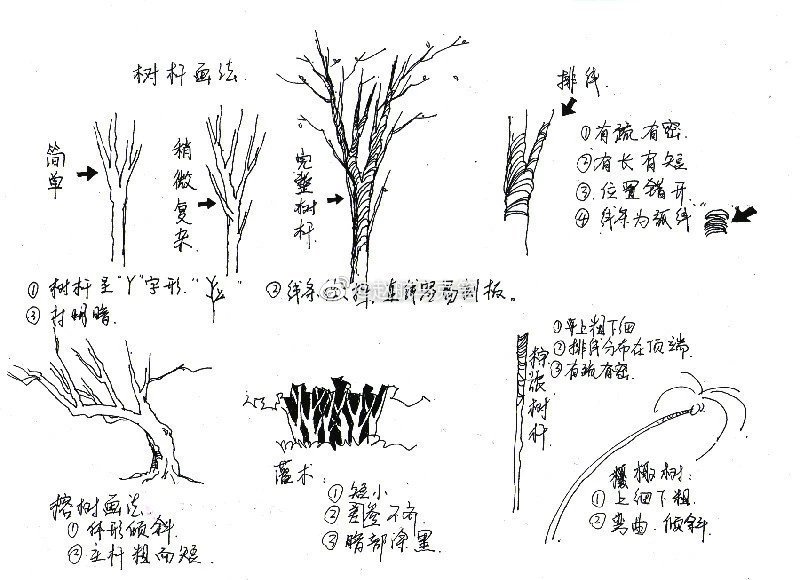 树杆画法
简单
稍微复杂
完整树杆
排线
①有疏有密
②有长有短
③位置错开
④线条为弧线"
①树杆呈"Y"字形.
③打明暗.
②线条 直线易刻板。
棕榈树杆
①上粗下细
②排线分布在顶端
③有疏有密
榕树画法
①体形倾斜
②主杆粗而短
灌木:
①短小
② 不齐
③暗部涂黑
树:
①上细下粗
②弯曲.倾斜.